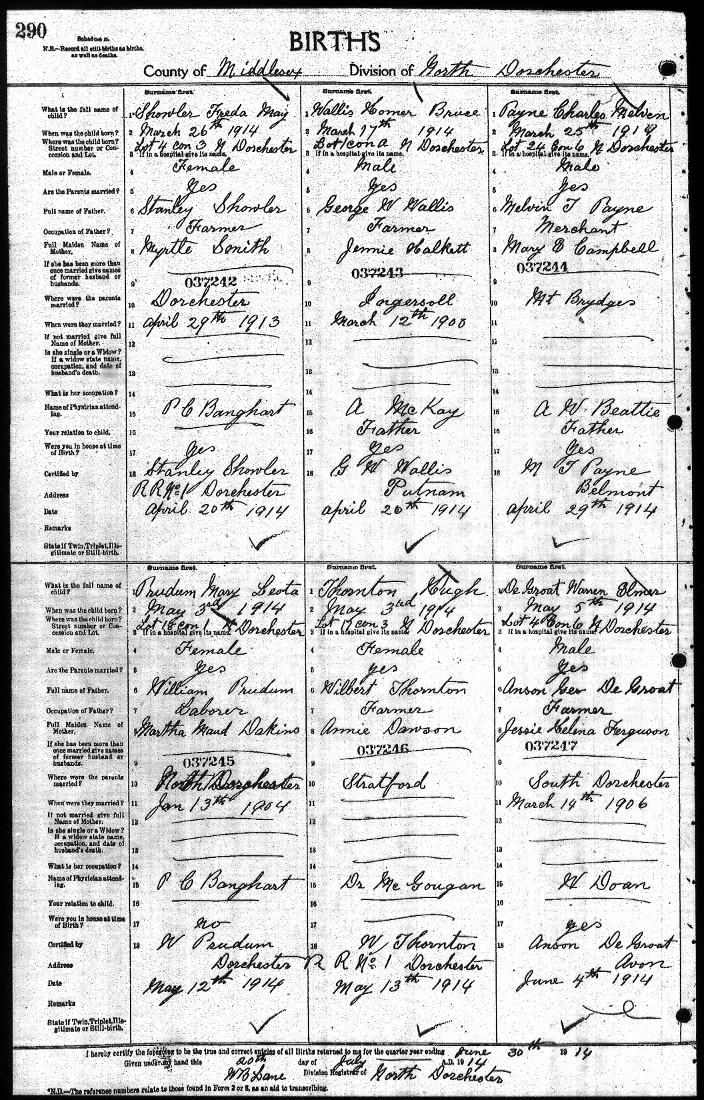 290
Schedule A.
N.B.—Record all still-births as births, as well as deaths.
BIRTHS
County of Middlesex Division of North Dorchester
Surname first. Surname first. Surname first.
What is the full name of child? 1 Showler Freda May 1 Wallis Homer Bruce 1 Payne Charles Melven
When was the child born? 2 March 26th 1914 2 March 17th 1914 2 March 25th 1914
Where was the child born? Street number or Concession and Lot. Lot 4 con 3 N Dorchester Lot 1 con A N Dorchester Lot 24 Con 6 N Dorchester
3 If in a hospital give its name. 3 If in a hospital give its name. 3 If in a hospital give its name.
Male or Female. 4 Female 4 Male 4 Male
Are the Parents married? 5 Yes 5 Yes 5 Yes
Full name of Father. 6 Stanley Showler 6 George W Wallis 6 Melvin T Payne
Occupation of Father? 7 Farmer 7 Farmer 7 Merchant
Full Maiden Name of Mother. 8 Myrtle Smith 8 Jennie Halkett 8 Mary B Campbell
If she has been more than once married give names of former husband or husbands. 9 037242 9 037243 9 037244
Where were the parents married? 10 Dorchester 10 Ingersoll 10 Mt Brydges
When were they married? 11 April 29th 1913 11 March 12th 1900 11
If not married give full Name of Mother. 12 12 12
Is she single or a Widow? If a widow state name, occupation, and date of husband's death. 13 13 13
What is her occupation? 14 14 14
Name of Physician attending. 15 P C Banghart 15 A McKay 15 A W Beattie
Your relation to child. 16 16 Father 16 Father
Were you in house at time of Birth? 17 Yes 17 Yes 17 Yes
Certified by 18 Stanley Showler 18 G W Wallis 18 M T Payne
Address R R No 1 Dorchester Putnam Belmont
Date April 20th 1914 April 20th 1914 April 29th 1914
Remarks
State if Twin, Triplet, Illegitimate or Still-birth.
Surname first. Surname first. Surname first.
What is the full name of child? 1 Prudum Mary Leota 1 Thornton Hugh 1 De Groat Warren Elmer
When was the child born? 2 May 3rd 1914 2 May 3rd 1914 2 May 5th 1914
Where was the child born? Street number or Concession and Lot. Lot 18 con 1 N Dorchester Lot 17 con 3 N Dorchester Lot 4 Con 6 N Dorchester
3 If in a hospital give its name. 3 If in a hospital give its name. 3 If in a hospital give its name.
Male or Female. 4 Female 4 Female 4 Male
Are the Parents married? 5 Yes 5 yes 5 Yes
Full name of Father. 6 William Prudum 6 Wilbert Thornton 6 Anson Geo De Groat
Occupation of Father? 7 Laborer 7 Farmer 7 Farmer
Full Maiden Name of Mother. 8 Martha Maud Dakins 8 Annie Dawson 8 Jessie Helena Ferguson
If she has been more than once married give names of former husband or husbands. 9 037245 9 037246 9 037247
Where were the parents married? 10 North Dorchester 10 Stratford 10 South Dorchester
When were they married? 11 Jan 13th 1904 11 11 March 14th 1906
If not married give full Name of Mother. 12 12 12
Is she single or a Widow? If a widow state name, occupation, and date of husband's death. 13 13 13
What is her occupation? 14 14 14
Name of Physician attending. 15 P C Banghart 15 Dr McGougan 15 W Doan
Your relation to child. 16 16 16
Were you in house at time of Birth? 17 no 17 17 yes
Certified by 18 W Prudum 18 W Thornton 18 Anson De Groat
Address Dorchester R R No 1 Dorchester Avon
Date May 12th 1914 May 13th 1914 June 4th 1914
Remarks
State if Twin, Triplet, Illegitimate or Still-birth.
I hereby certify the foregoing to be the true and correct entries of all Births returned to me for the quarter year ending June 30th 1914
Given under my hand this 20th day of July A.D. 1914
W B Lane Division Registrar of North Dorchester
*N.B.—The reference numbers relate to those found in Form 2 or 3, as an aid to transcribing.